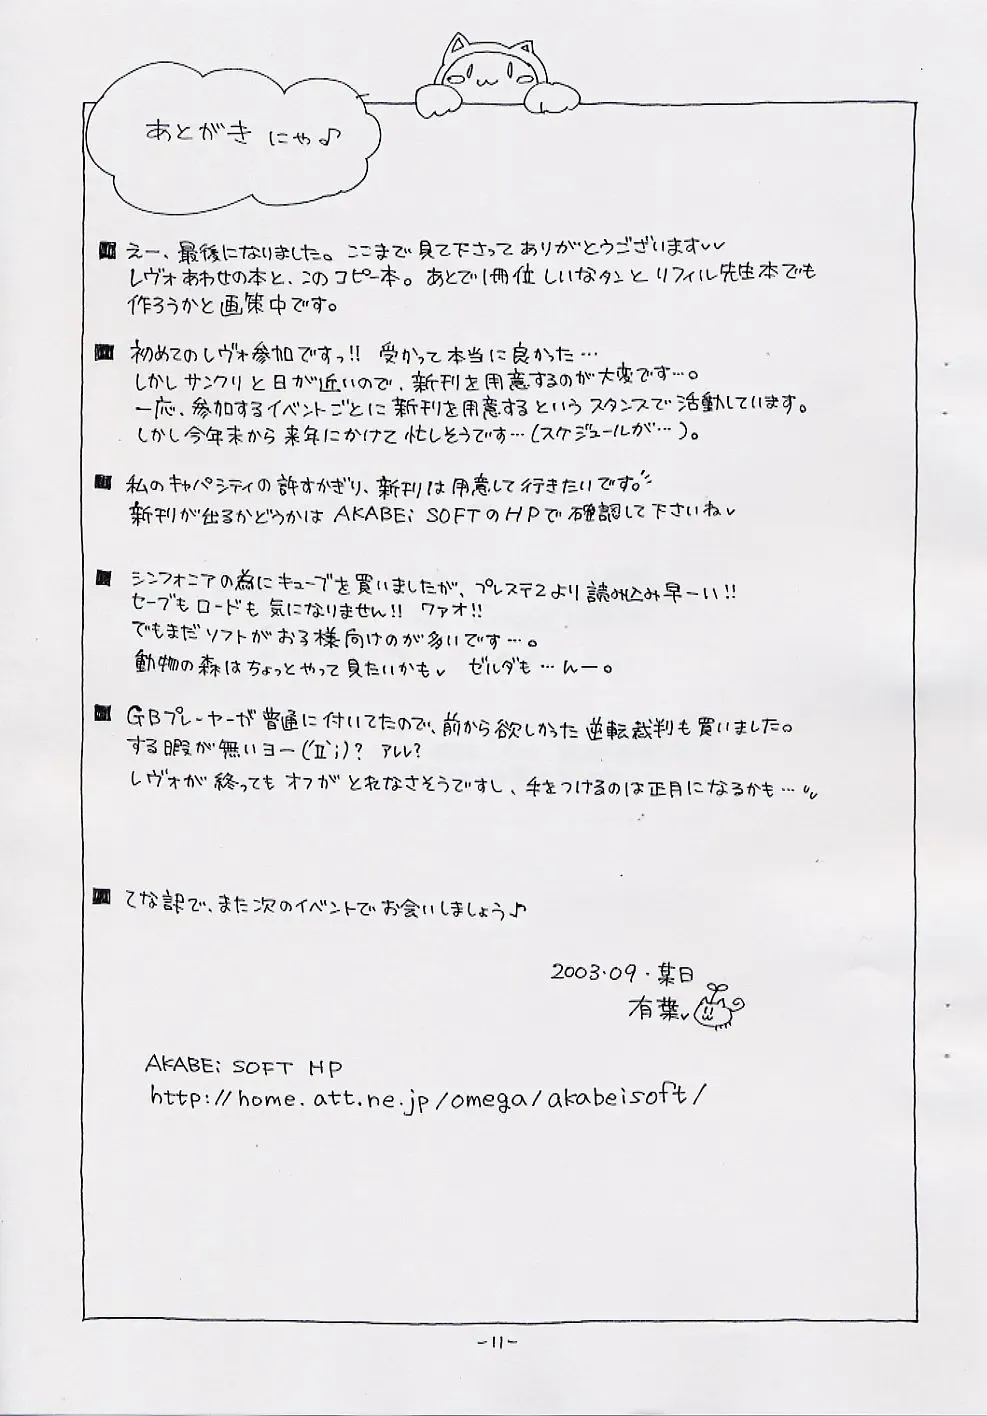 あとがき にゃ♪
えー、最後になりました。ここまで見て下さってありがとうございます
レヴォあわせの本と、このコピー本。あとで1冊位しいなタンとリフィル先生本でも
作ろうかと画策中です。
初めてのレヴォ参加ですっ!! 受かって本当に良かった…
しかしサンクリと日が近いので、新刊を用意するのが大変です…。
一応、参加するイベントごとに新刊を用意するというスタンスで活動しています。
しかし今年末から来年にかけて忙しそうです…(スケジュールが…)。
私のキャパシティの許すかぎり、新刊は用意して行きたいです。
新刊が出るかどうかは AKABEi SOFTのHPで確認して下さいね
シンフォニアの為にキューブを買いましたが、プレステ2より読み込み早ーい!!
セーブもロードも気になりません!! ワァオ!!
でもまだソフトがお子様向けのが多いです…。
動物の森はちょっとやって見たいかも ゼルダも…んー。
GBプレーヤーが普通に付いてたので、前から欲しかった逆転裁判も買いました。
する暇が無いヨー(´Д`;)? アレレ?
レヴォが終ってもオフがとれなさそうですし、手をつけるのは正月になるかも…
てな訳で、また次のイベントでお会いしましょう♪
2003.09.某日
有葉
AKABEi SOFT HP
http://home.att.ne.jp/omega/akabeisoft/
-11-